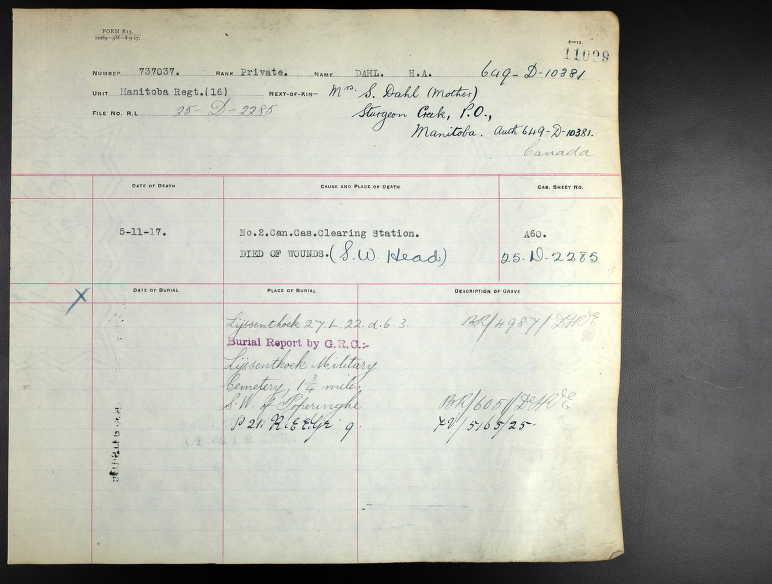 FORM
11029
NUMBER 737037. RANK Private. NAME DAHL. H.A. 649-D-10381
UNIT Manitoba Regt.(16) NEXT-OF-KIN- Mrs. S. Dahl (Mother)
FILE NO. R.L 25-D-2285 Sturgeon Creek, P.O.,
Manitoba. Auth 649-D-10381.
Canada
DATE OF DEATH CAUSE AND PLACE OF DEATH CAS. SHEET NO.
5-11-17. No.2.Can.Cas.Clearing Station. A60.
DIED OF WOUNDS.(S.W. Head) 25-D-2285
X DATE OF BURIAL PLACE OF BURIAL DESCRIPTION OF GRAVE
Lijssenthoek 27.L.22.d.6.3. BR/4987/
Burial Report by G.R.O:-
Lijssenthoek Military
Cemetery, 1¾ miles
S.W. of Poperinghe